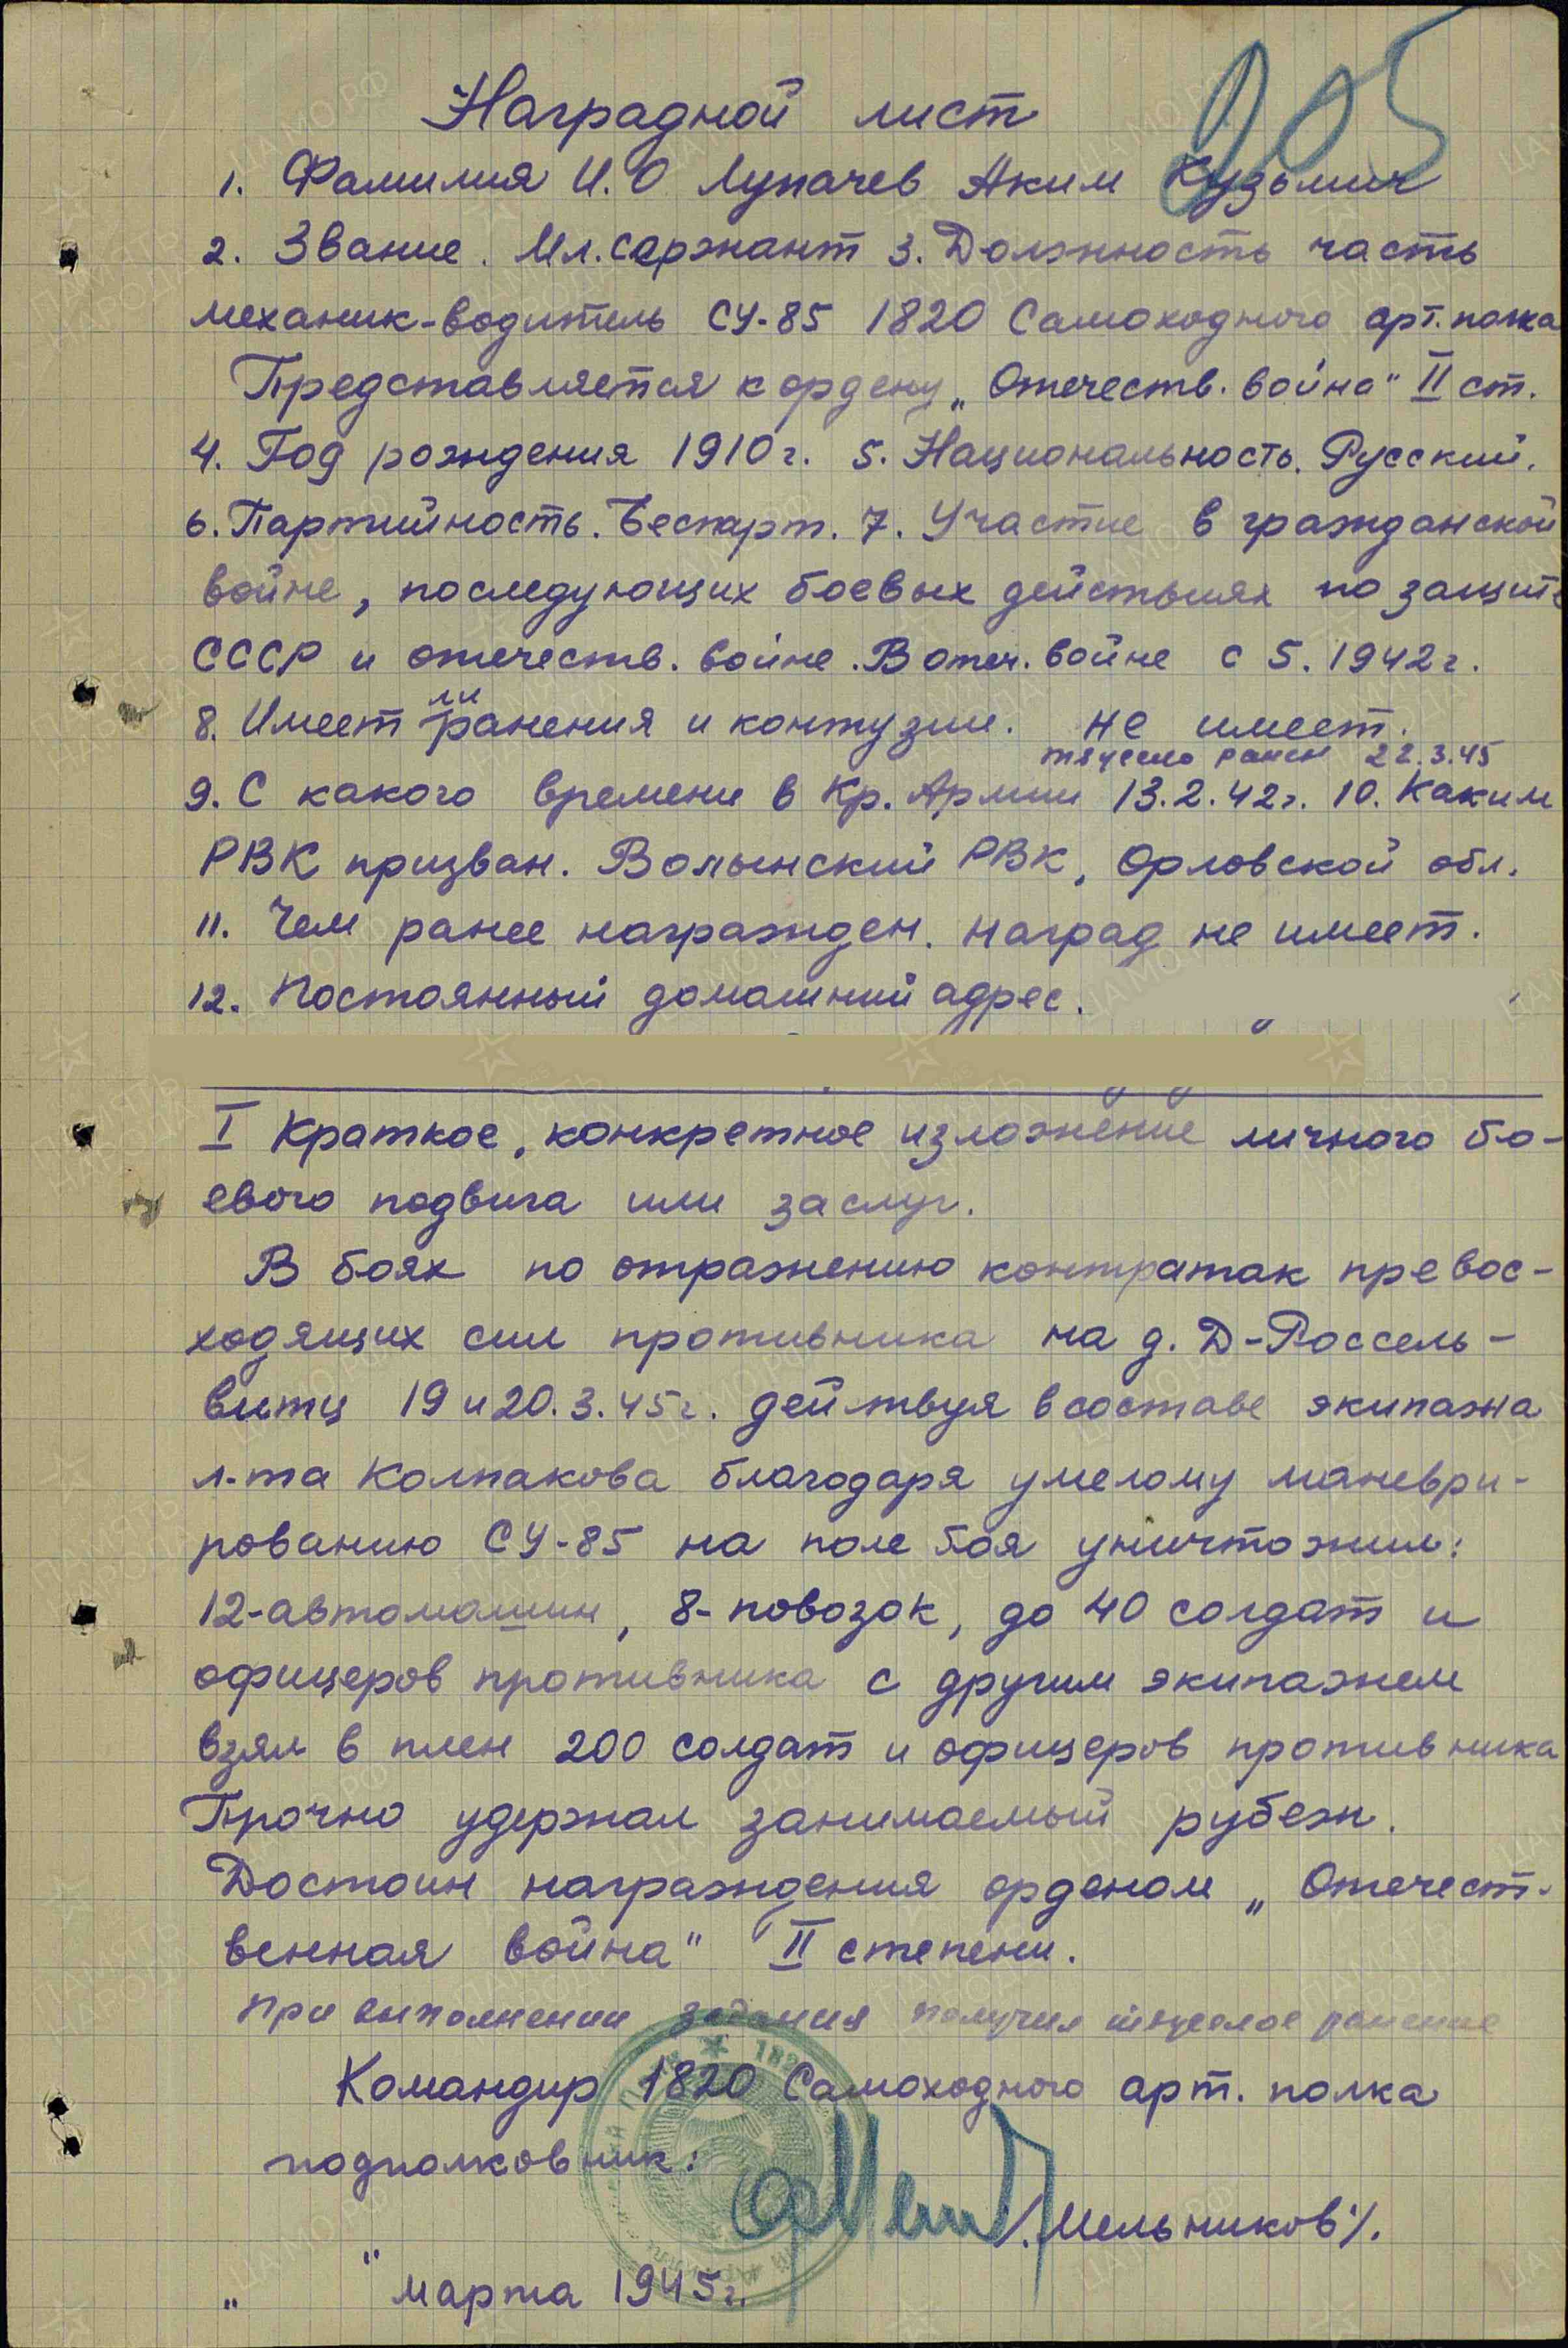 205
Наградной лист
1. Фамилия И.О Лупачев Аким Кузьмич
2. Звание. Мл. сержант 3. Должность часть
механик-водитель СУ-85 1820 Самоходного арт. полка
Представляется к ордену „Отечеств. война" II ст.
4. Год рождения 1910 г. 5. Национальность. Русский.
6. Партийность. Беспарт. 7. Участие в гражданской
войне, последующих боевых действиях по защите
СССР и отечеств. войне. В отеч. войне с 5. 1942 г.
8. Имеет ли ранения и контузии. не имеет.
тяжело ранен 22.3.45
9. С какого времени в Кр. Армии 13.2.42 г. 10. Каким
РВК призван. Волынский РВК, Орловской обл.
11. Чем ранее награжден. наград не имеет.
12. Постоянный домашний адрес.
I Краткое, конкретное изложение личного бо-
евого подвига или заслуг.
В боях по отражению контратак превос-
ходящих сил противника на д. Д-Россель-
витц 19 и 20.3.45 г. действуя в составе экипажа
л-та Колпакова благодаря умелому маневри-
рованию СУ-85 на поле боя уничтожил:
12-автомашин, 8-повозок, до 40 солдат и
офицеров противника с другим экипажем
взял в плен 200 солдат и офицеров противника
Прочно удержал занимаемый рубеж.
Достоин награждения орденом „Отечест-
венная война" II степени.
При выполнении задания получил тяжелое ранение
Командир 1820 Самоходного арт. полка
подполковник:
/.Мельников./.
„ " марта 1945 г.